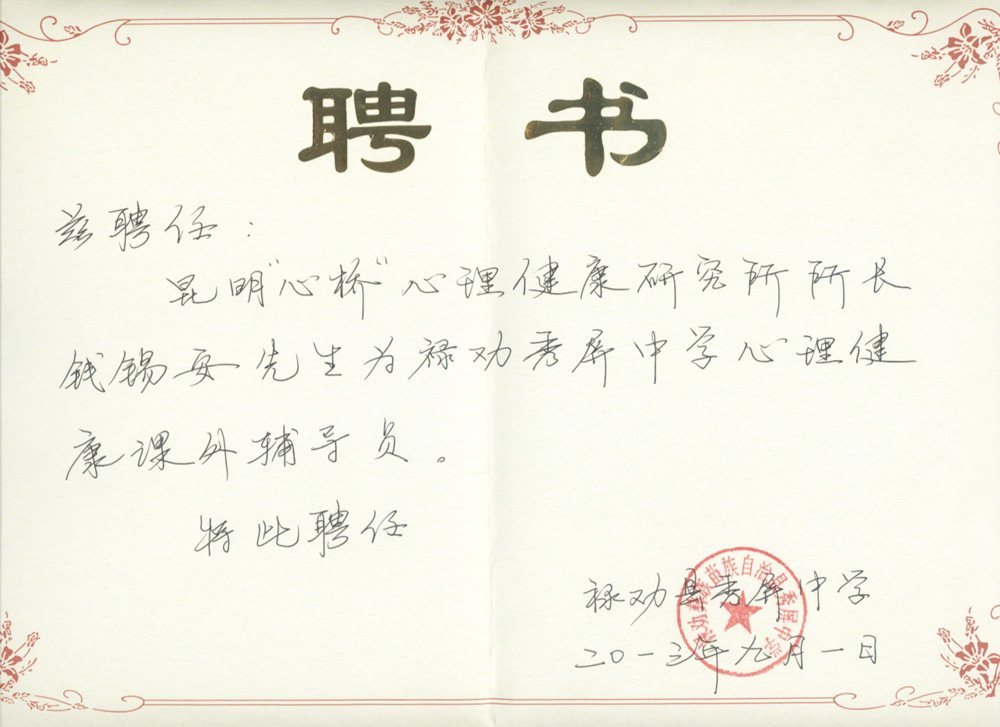 聘书
兹聘任：
昆明"心桥"心理健康研究所所长
钱锡安先生为禄劝秀屏中学心理健
康课外辅导员。
特此聘任
禄劝县秀屏中学
二〇一三年九月一日
禄劝彝族苗族自治县秀屏中学